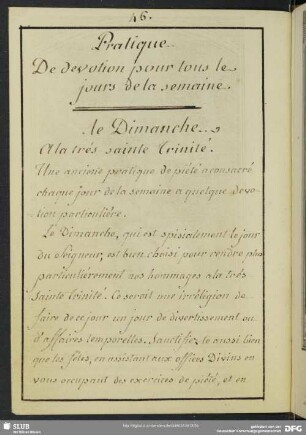 46.
Pratique
De devotion pour tous les
jours de la semaine
le Dimanche
A la trés sainte Trinité.
Une ancienne pratique de piété a consacré
chaque jour de la semaine a quelque devo-
tion particuliére.
Le Dimanche, qui est spécialement le jour
du Seigneur, est bien choisi pour rendre plus
particuliérement nos hommages a la trés
Sainte Trinité. Ce serait une irréligion de
faire de ce jour un jour de divertissement ou
d'affaires temporelles. Sanctifiez le aussi bien
que les fêtes, en assistant aux offices Divins en
vous occupant des exercices de piété, et en
SLUB
Wir führen Wissen.
DFG